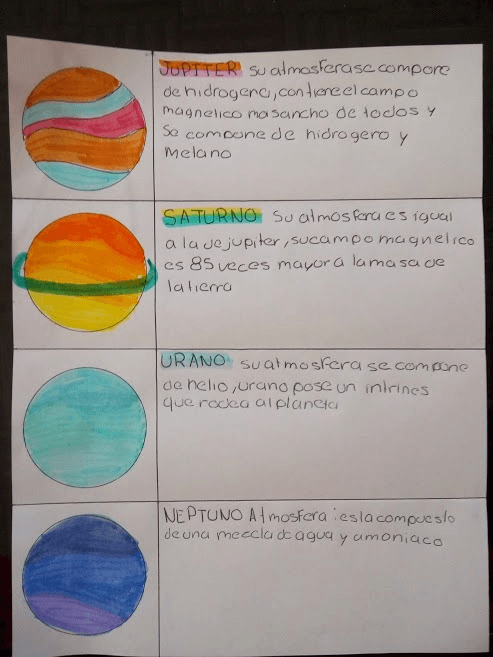 JUPITER Su atmosfera se compone
de hidrogeno, contiene el campo
magnetico mas ancho de todos y
Se compone de hidrogero y
Melano
SATURNO Su atmosfera es igual
a la de jupiter, su campo magnetico
es 85 veces mayor a la masa de
la tierra
URANO su atmosfera se compone
de helio, urano pose un intrines
que rodea al planeta
NEPTUNO Atmosfera: es la compuesto
de una mezcla de agua y amoniaco